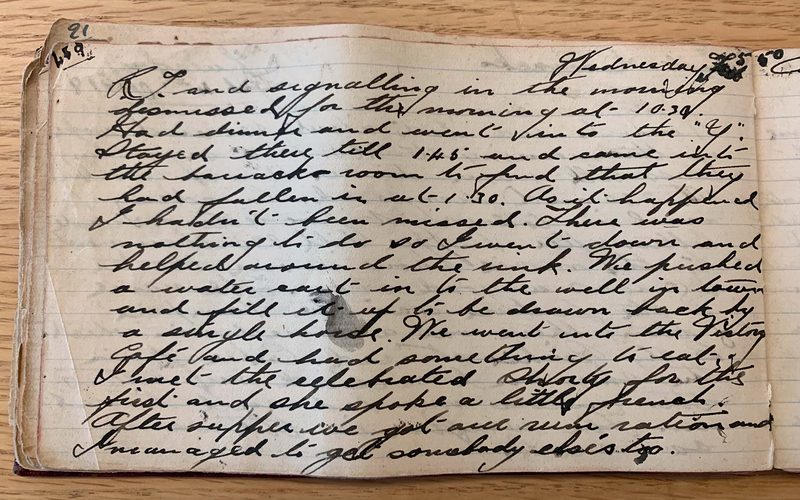 21
159
Wednesday Feb 5
P.T. and signalling in the morning
dismissed for the morning at 10.30.
Had dinner and went into the "Y".
Stayed there till 1.45 and came into
the barracks room to find that they
had fallen in at 1.30. As it happened
I hadn't been missed. There was
nothing to do so I went down and
helped around the rink. We pushed
a water cart in to the well in town
and fill it up to be drawn back by
a single horse. We went into the Victory
Cafe and had something to eat.
I met the celebrated Shorty for the
first and she spoke a little french.
After supper we got our rum ration and
I managed to get somebody else's too.